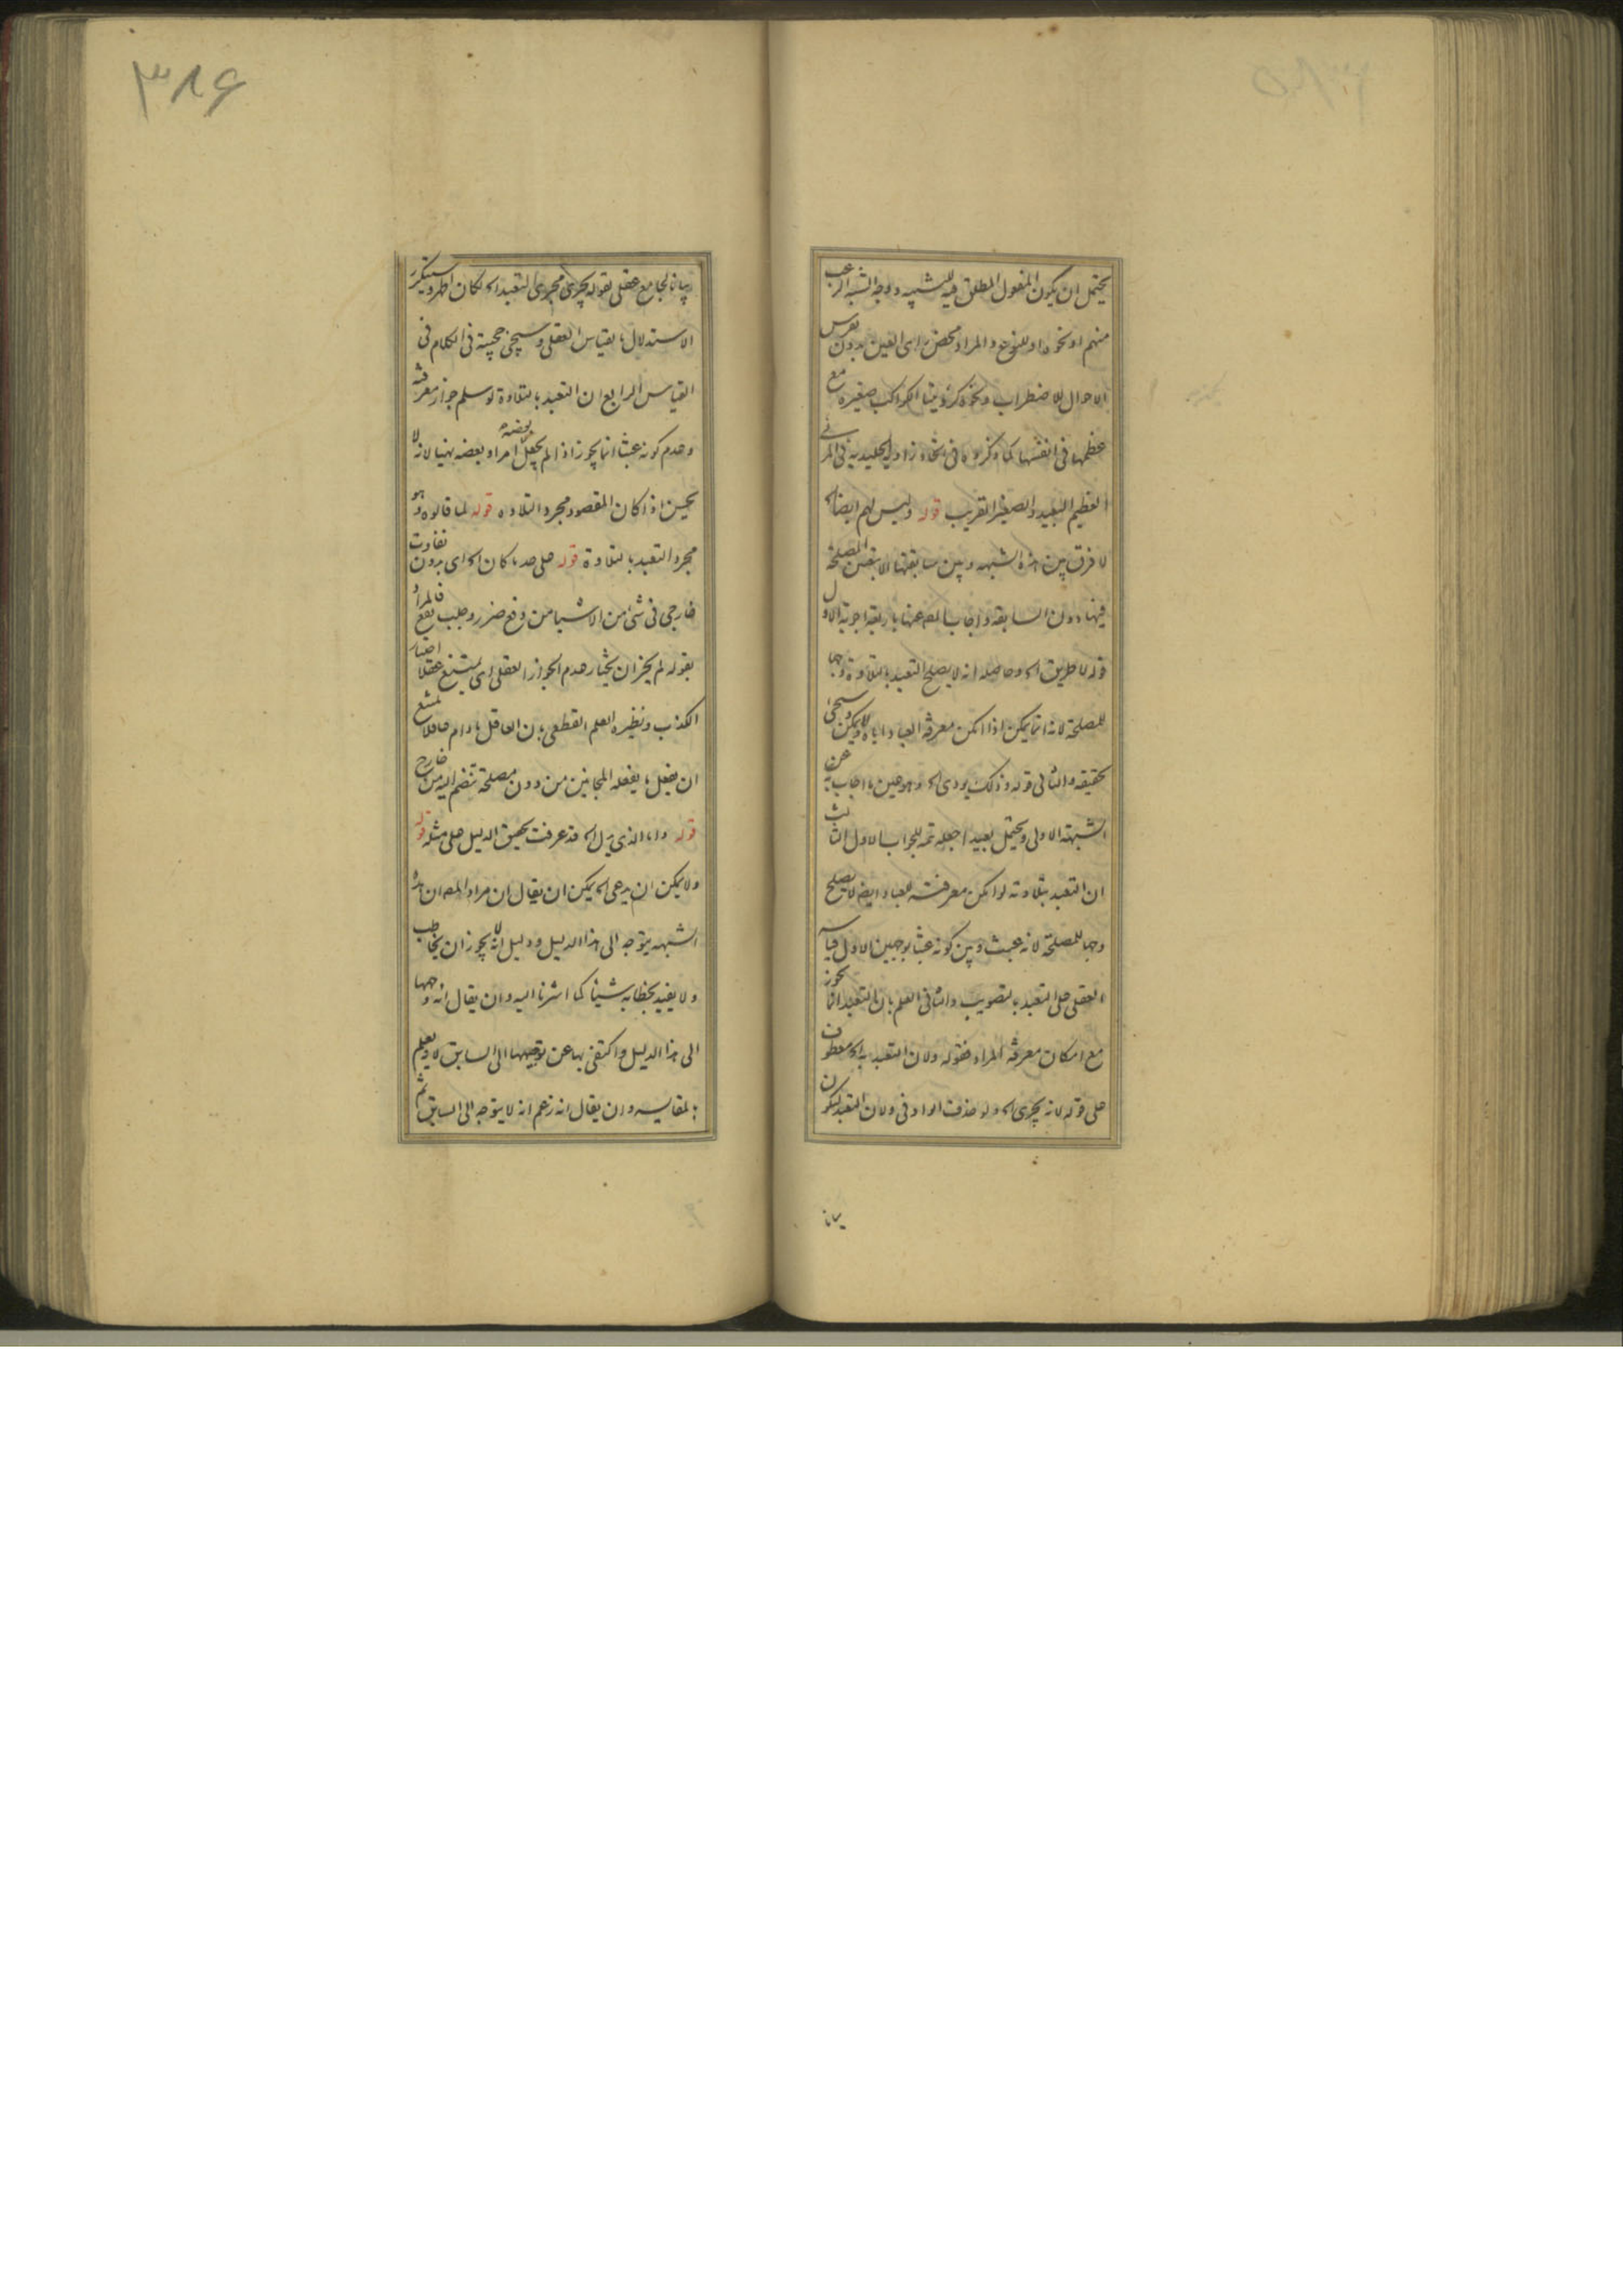 يحتمل ان يكون المفعول المطلق فيه للتشبيه ووجه الشبه الرعب
منهم او نحوه او للنوع والمراد محض رأى العين بدون تفرس
الاحوال للاضطراب ونحوه كرؤيتنا الكواكب صغيره مع
عظمها فى انفسها كما ذكروه فى اتحاد زاوية الجليدية فى المرئى
العظيم البعيد والصغير القريب قوله وليس لهم ايضا اه
لا فرق بين هذه الشبهه وبين سابقتها الا بتعين المصلحة
فيها دون السابقه واجاب المصـ عنها باربعة اجوبة الاول
قوله لا طريق اه وحاصله انه لا يصلح التعبد بالتلاوة وجها
للمصلحة لانه انما يمكن اذا امكن معرفة العباد اياه ولا يمكن وسيجئ
تحقيقه والثانى قوله وذلك يودى اه وهو عين ما اجاب به عن
الشبهة الاولى ويحتمل بعيدا جعله تتمه للجواب الاول الثالث
ان التعبد بتلاوته لو امكن معرفته للعباد ايضا لا يصلح
وجها للمصلحة لانه عبث وبين كونه عبثا بوجهين الاول قياسه
العقلى على التعبد بالتصويب والثانى العلم بان التعبد انما يجوز
مع امكان معرفة المراد فقوله ولان التعبد به اه معطوف
على قوله لانه يجرى اه ولو حذفت الواو فى ولان التعبد ليكون
بيانا
٣٨۶
بيانا لجامع عقلى بقوله يجرى مجرى التعبد اه لكان اظهر وسيتكرر
الاستدلال بالقياس العقلى وسيجئ حجيته فى الكلام فى
القياس الرابع ان التعبد بالتلاوة لو سلم جواز معرفته
وعدم كونه عبثا انما يجوز اذا لم يجعل بعضه امرا وبعضه نهيا لانه لا
يحسن اذا كان المقصود مجرد التلاوه قوله لما قالوه وهو
مجرد التعبد بالتلاوة قوله على حد ما كان اه اى بدون تفاوت
خارجى فى شئ من الاشيا من دفع ضرر وجلب نفع فالمراد
بقوله لم يجز ان يختار عدم الجواز العقلى اى يمتنع عقلا اختيار
الكذب ونظيره العلم القطعى بان العاقل ما دام عاقلا يمتنع
ان يفعل ما يفعله المجانين من دون مصلحة تنضم اليه من خارج
قوله واما الذى يدل اه قد عرفت تحقيق الدليل على مثله قوله
ولا يمكن ان يدعى اه يمكن ان يقال ان مراد المصـ ان هذه
الشبهه يتوجه الى هذا الدليل ودليل انه لا يجوز ان يخاطب
ولا يفيد بخطابه شيئا كما اشرنا اليه وان يقال انه وجهها
الى هذا الدليل واكتفى بها عن توجيهها الى السابق لا ويعلم
بالمقايسه وان يقال انه زعم انه لا يتوجه الى السابق ثم